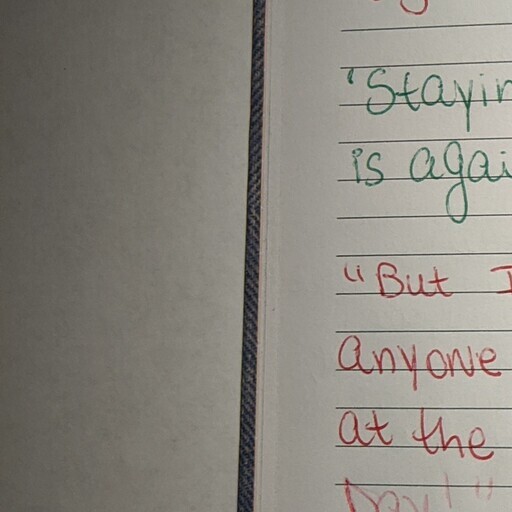 "Stayin
is agai
"But I
anyone
at the
Day!"